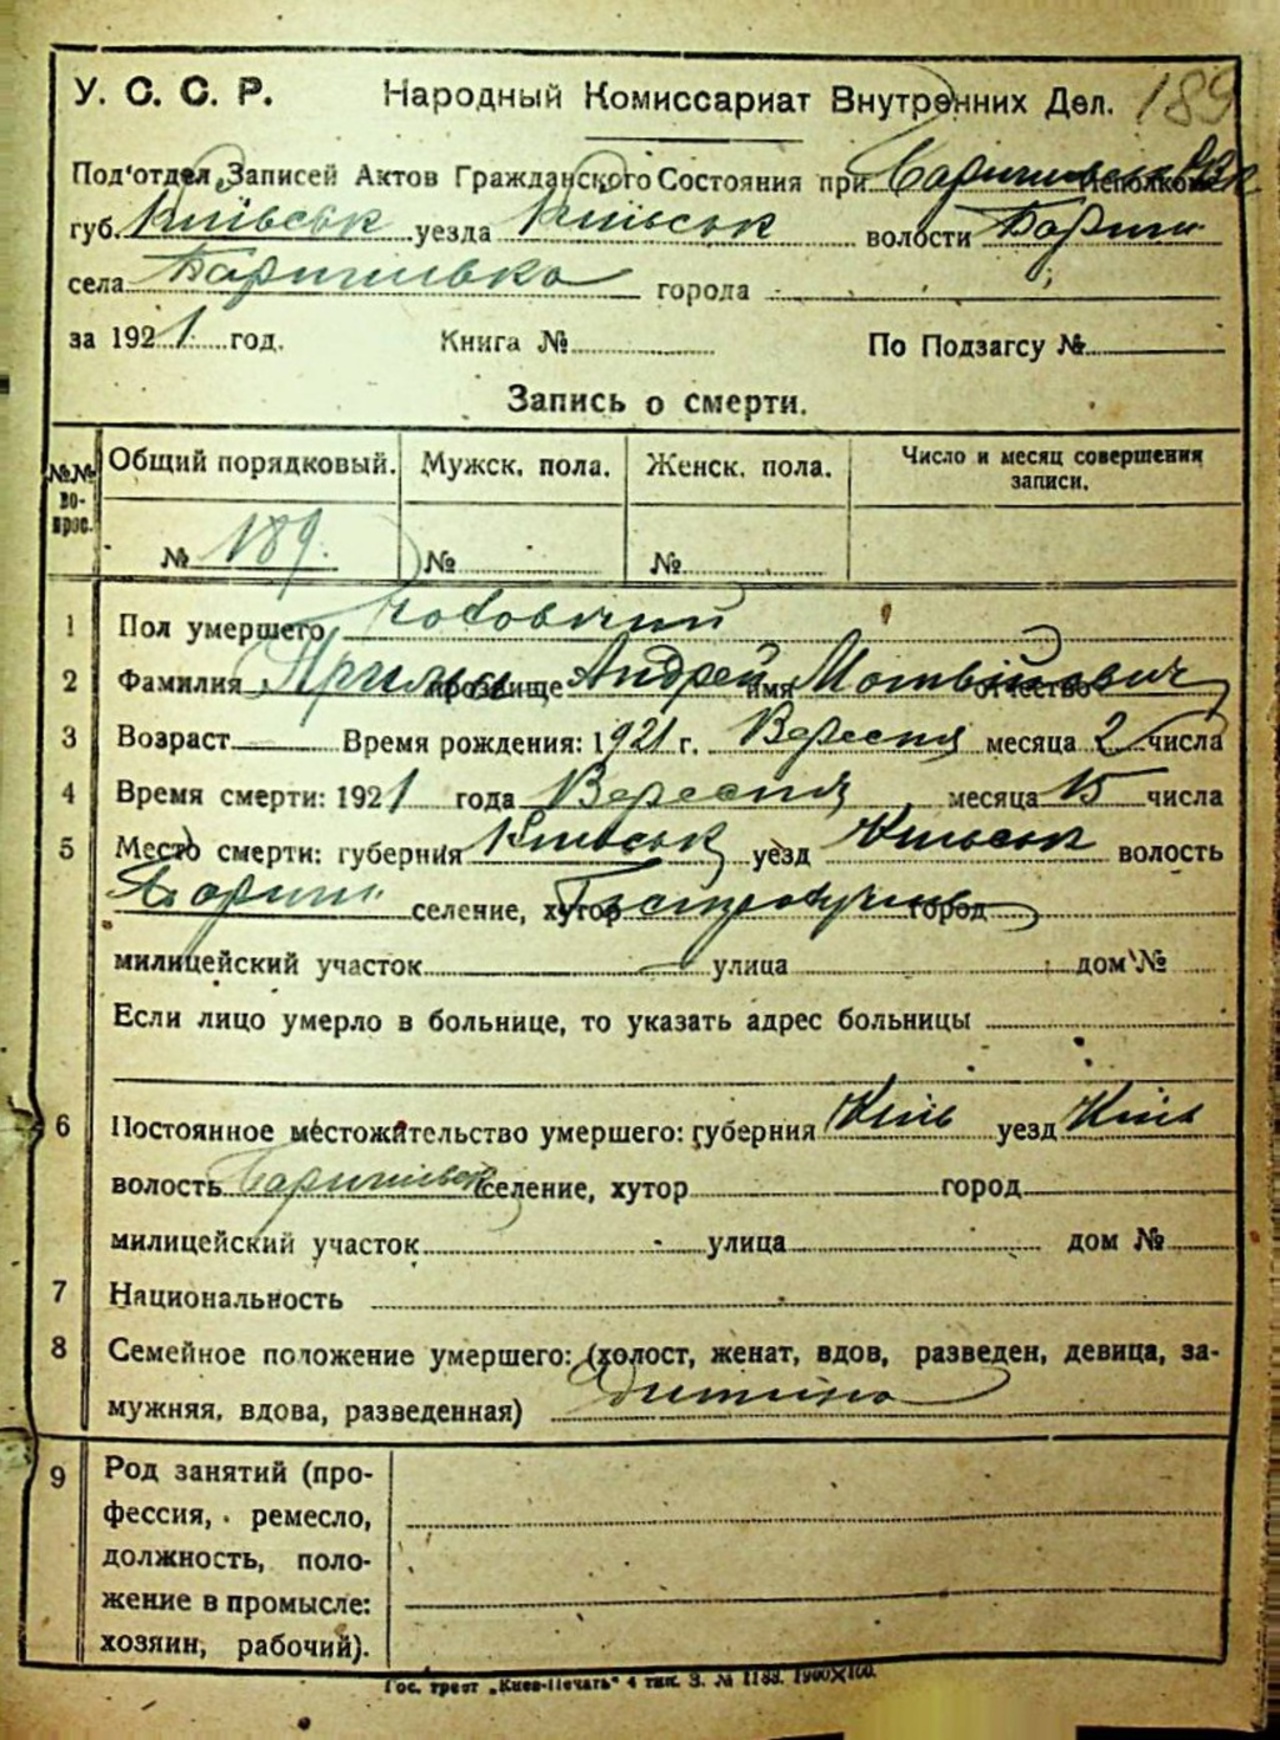 У. С. С. Р. Народный Комиссариат Внутренних Дел. 189
Под'отдел Записей Актов Гражданского Состояния при Исполкоме
губ. Київськ уезда Київськ волости Бориш
села Баришівка города
за 1921 год. Книга № По Подзагсу №
Запись о смерти.
№№ во- прос. Общий порядковый. Мужск. пола. Женск. пола. Число и месяц совершения записи.
№ 189. № №
1 Пол умершего Чоловічий
2 Фамилия прозвище Андрей имя Мотвійович отчество
3 Возраст Время рождения: 1921 г. Вересня месяца 2 числа
4 Время смерти: 1921 года Вересня месяца 15 числа
5 Место смерти: губерния Київськ уезд Київськ волость
Бориш селение, хутор город
милицейский участок улица дом №
Если лицо умерло в больнице, то указать адрес больницы
6 Постоянное местожительство умершего: губерния Київ уезд Київ
волость Баришівськ селение, хутор город
милицейский участок улица дом №
7 Национальность
8 Семейное положение умершего: (холост, женат, вдов, разведен, девица, за-
мужняя, вдова, разведенная) дитина
9 Род занятий (про-
фессия, ремесло,
должность, поло-
жение в промысле:
хозяин, рабочий).
Гос. трест „Киев-Печать" 4 тип. З. № 1188. 1900×100.